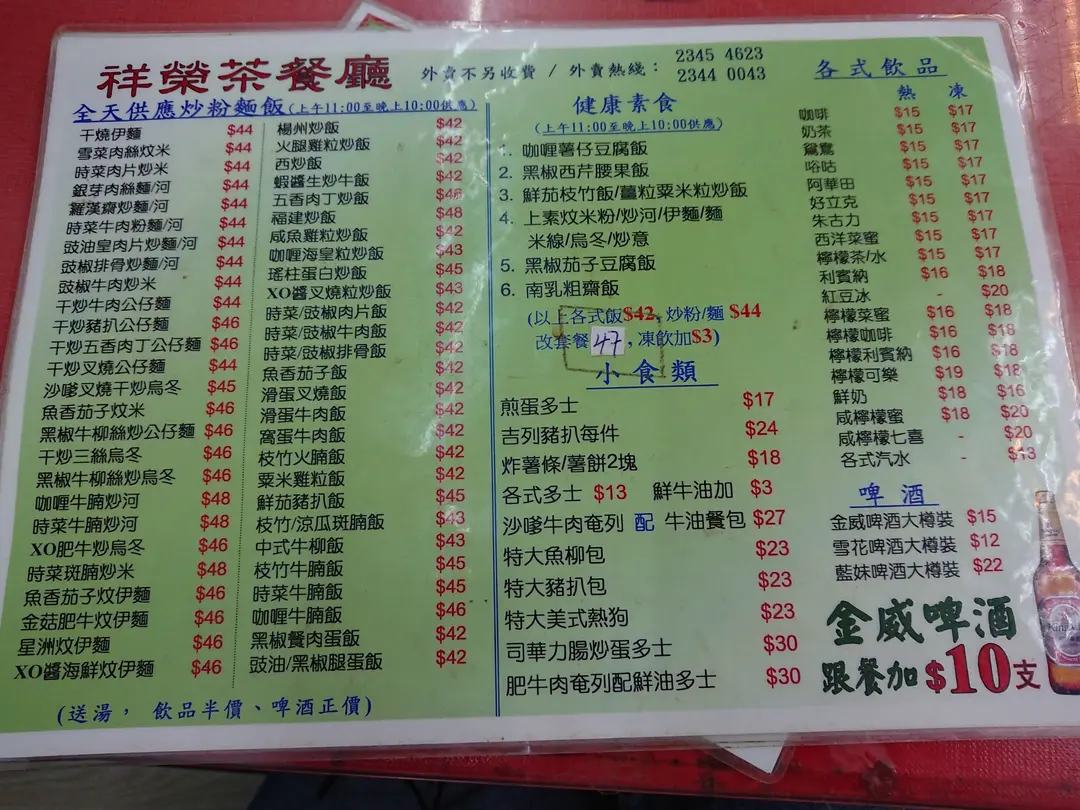 祥榮茶餐廳
外賣不另收費 / 外賣熱綫：
2345 4623
2344 0043
全天供應炒粉麵飯(上午11:00至晚上10:00供應)
干燒伊麵 $44
雪菜肉絲炆米 $44
時菜肉片炒米 $44
銀芽肉絲麵/河 $44
羅漢齋炒麵/河 $44
時菜牛肉粉麵/河 $44
豉油皇肉片炒麵/河 $44
豉椒排骨炒麵/河 $44
豉椒牛肉炒米 $44
干炒牛肉公仔麵 $44
干炒豬扒公仔麵 $46
干炒五香肉丁公仔麵 $46
干炒叉燒公仔麵 $44
沙嗲叉燒干炒烏冬 $45
魚香茄子炆米 $46
黑椒牛柳絲炒公仔麵 $46
干炒三絲烏冬 $46
黑椒牛柳絲炒烏冬 $46
咖喱牛腩炒河 $48
時菜牛腩炒河 $48
XO肥牛炒烏冬 $46
時菜斑腩炒米 $48
魚香茄子炆伊麵 $46
金菇肥牛炆伊麵 $46
星洲炆伊麵 $46
XO醬海鮮炆伊麵 $46
(送湯， 飲品半價、啤酒正價)
楊州炒飯 $42
火腿雞粒炒飯 $42
西炒飯 $42
蝦醬生炒牛飯 $42
五香肉丁炒飯
福建炒飯 $48
咸魚雞粒炒飯 $42
咖喱海皇粒炒飯 $43
瑤柱蛋白炒飯 $45
XO醬叉燒粒炒飯 $43
時菜/豉椒肉片飯 $42
時菜/豉椒牛肉飯 $42
時菜/豉椒排骨飯 $42
魚香茄子飯 $42
滑蛋叉燒飯 $42
滑蛋牛肉飯 $42
窩蛋牛肉飯 $42
枝竹火腩飯 $42
粟米雞粒飯 $42
鮮茄豬扒飯 $45
枝竹/涼瓜斑腩飯 $43
中式牛柳飯 $43
枝竹牛腩飯 $45
時菜牛腩飯 $45
咖喱牛腩飯 $46
黑椒餐肉蛋飯 $42
豉油/黑椒腿蛋飯 $42
健康素食
(上午11:00至晚上10:00供應)
1. 咖喱薯仔豆腐飯
2. 黑椒西芹腰果飯
3. 鮮茄枝竹飯/薑粒粟米粒炒飯
4. 上素炆米粉/炒河/伊麵/麵
米線/烏冬/炒意
5. 黑椒茄子豆腐飯
6. 南乳粗齋飯
(以上各式飯$42, 炒粉/麵 $44
改套餐 47, 凍飲加$3)
小食類
煎蛋多士 $17
吉列豬扒每件 $24
炸薯條/薯餅2塊 $18
各式多士 $13 鮮牛油加 $3
沙嗲牛肉奄列 配 牛油餐包 $27
特大魚柳包 $23
特大豬扒包 $23
特大美式熱狗 $23
司華力腸炒蛋多士 $30
肥牛肉奄列配鮮油多士 $30
各式飲品
熱 凍
咖啡 $15 $17
奶茶 $15 $17
鴛鴦 $15 $17
唂咕 $15 $17
阿華田 $15 $17
好立克 $15 $17
朱古力 $15 $17
西洋菜蜜 $15 $17
檸檬茶/水 $15 $17
利賓納 $16 $18
紅豆冰 - $20
檸檬菜蜜 $16 $18
檸檬咖啡 $16 $18
檸檬利賓納 $16 $18
檸檬可樂 $19 $18
鮮奶 $18 $16
咸檸檬蜜 $18 $20
咸檸檬七喜 - $20
各式汽水 - $13
啤酒
金威啤酒大樽裝 $15
雪花啤酒大樽裝 $12
藍妹啤酒大樽裝 $22
金威啤酒
跟餐加$10支